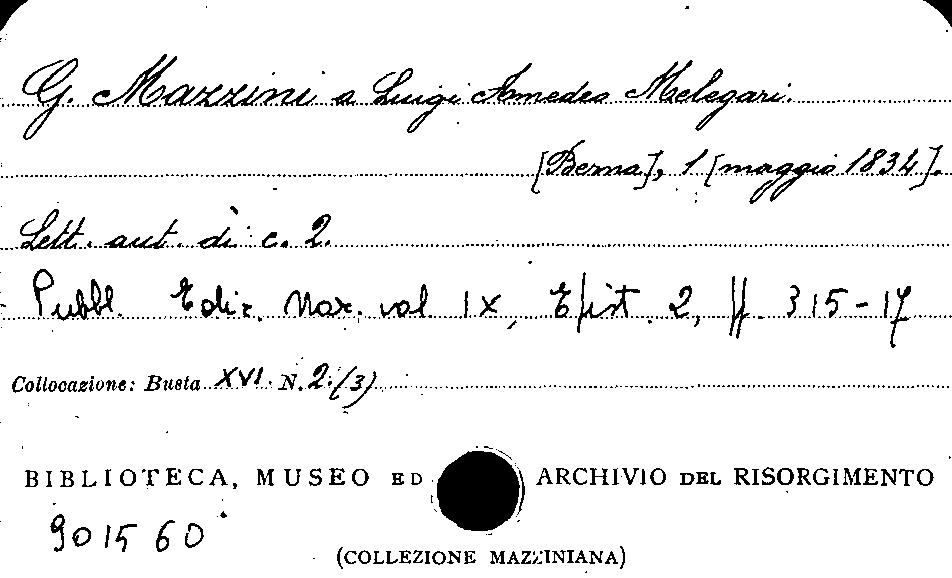 G. Mazzini a Luigi Amedeo Melegari.
[Berna], 1 [maggio 1834].
Lett. aut. di c. 2.
Pubbl. Ediz. Naz. vol IX, Epist. 2, pp. 315-17
Collocazione: Busta XVI. N. 2.(3)
BIBLIOTECA, MUSEO ED ARCHIVIO DEL RISORGIMENTO
901560
(COLLEZIONE MAZZINIANA)